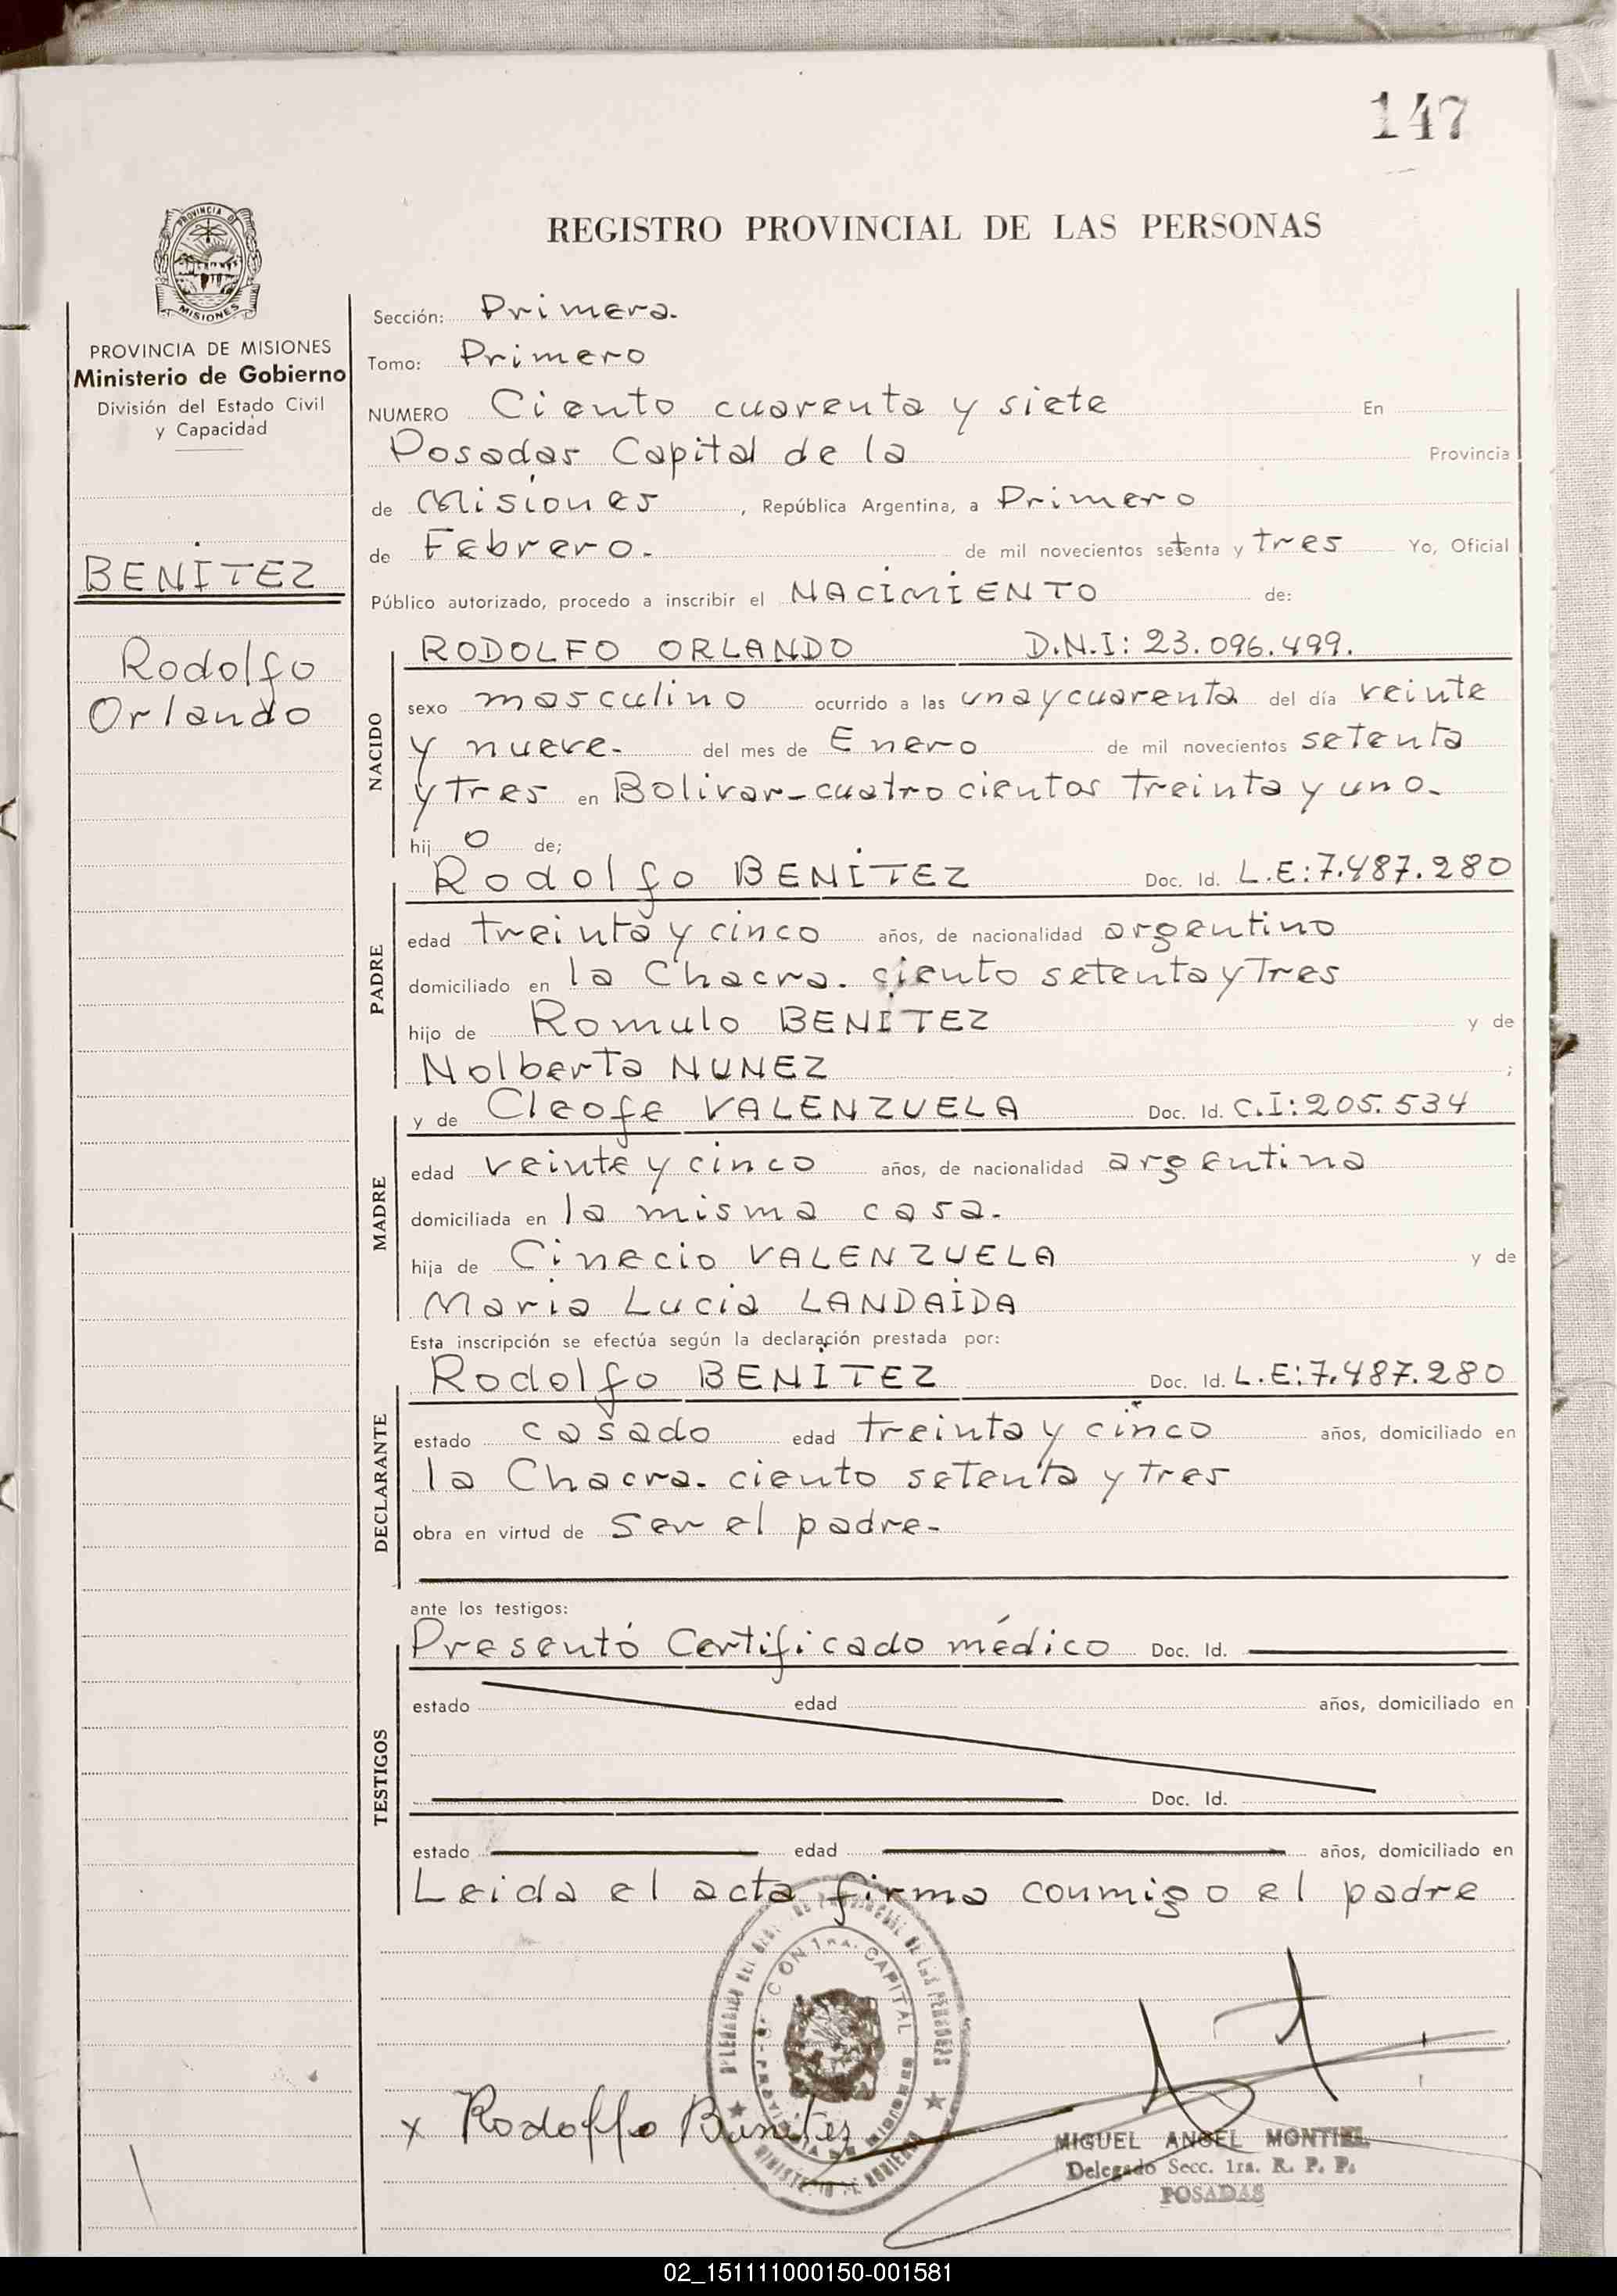 147
PROVINCIA D
MISIONES
REGISTRO PROVINCIAL DE LAS PERSONAS
PROVINCIA DE MISIONES
Ministerio de Gobierno
División del Estado Civil
y Capacidad
BENÍTEZ
Rodolfo
Orlando
Sección: Primera.
Tomo: Primero
NUMERO Ciento cuarenta y siete En
Posadas Capital de la Provincia
de Misiones, República Argentina, a Primero
de Febrero. de mil novecientos setenta y tres Yo, Oficial
Público autorizado, procedo a inscribir el NACIMIENTO de:
NACIDO
RODOLFO ORLANDO D.N.I: 23.096.499.
sexo masculino ocurrido a las una y cuarenta del día veinte
y nueve. del mes de Enero de mil novecientos setenta
y tres en Bolivar-cuatrocientos treinta y uno.
hijo de;
PADRE
Rodolfo BENÍTEZ Doc. Id. L.E:7.487.280
edad treinta y cinco años, de nacionalidad argentino
domiciliado en la Chacra. ciento setenta y tres
hijo de Romulo BENITEZ y de
Nolberta NUNEZ ;
MADRE
y de Cleofe VALENZUELA Doc. Id. C.I:205.534
edad veinte y cinco años, de nacionalidad argentina
domiciliada en la misma casa.
hija de Cinecio VALENZUELA y de
Maria Lucia LANDAIDA
Esta inscripción se efectúa según la declaración prestada por:
DECLARANTE
Rodolfo BENÍTEZ Doc. Id. L.E:7.487.280
estado casado edad treinta y cinco años, domiciliado en
la Chacra. ciento setenta y tres
obra en virtud de Ser el padre.
ante los testigos:
TESTIGOS
Presentó Certificado médico Doc. Id.
estado edad años, domiciliado en
Doc. Id.
estado edad años, domiciliado en
Leida el acta firma conmigo el padre
CAPITAL
x Rodolfo Benites
MIGUEL ANGEL MONTIEL
Delegado Secc. 1ra. R. P. P.
POSADAS
02_151111000150-001581